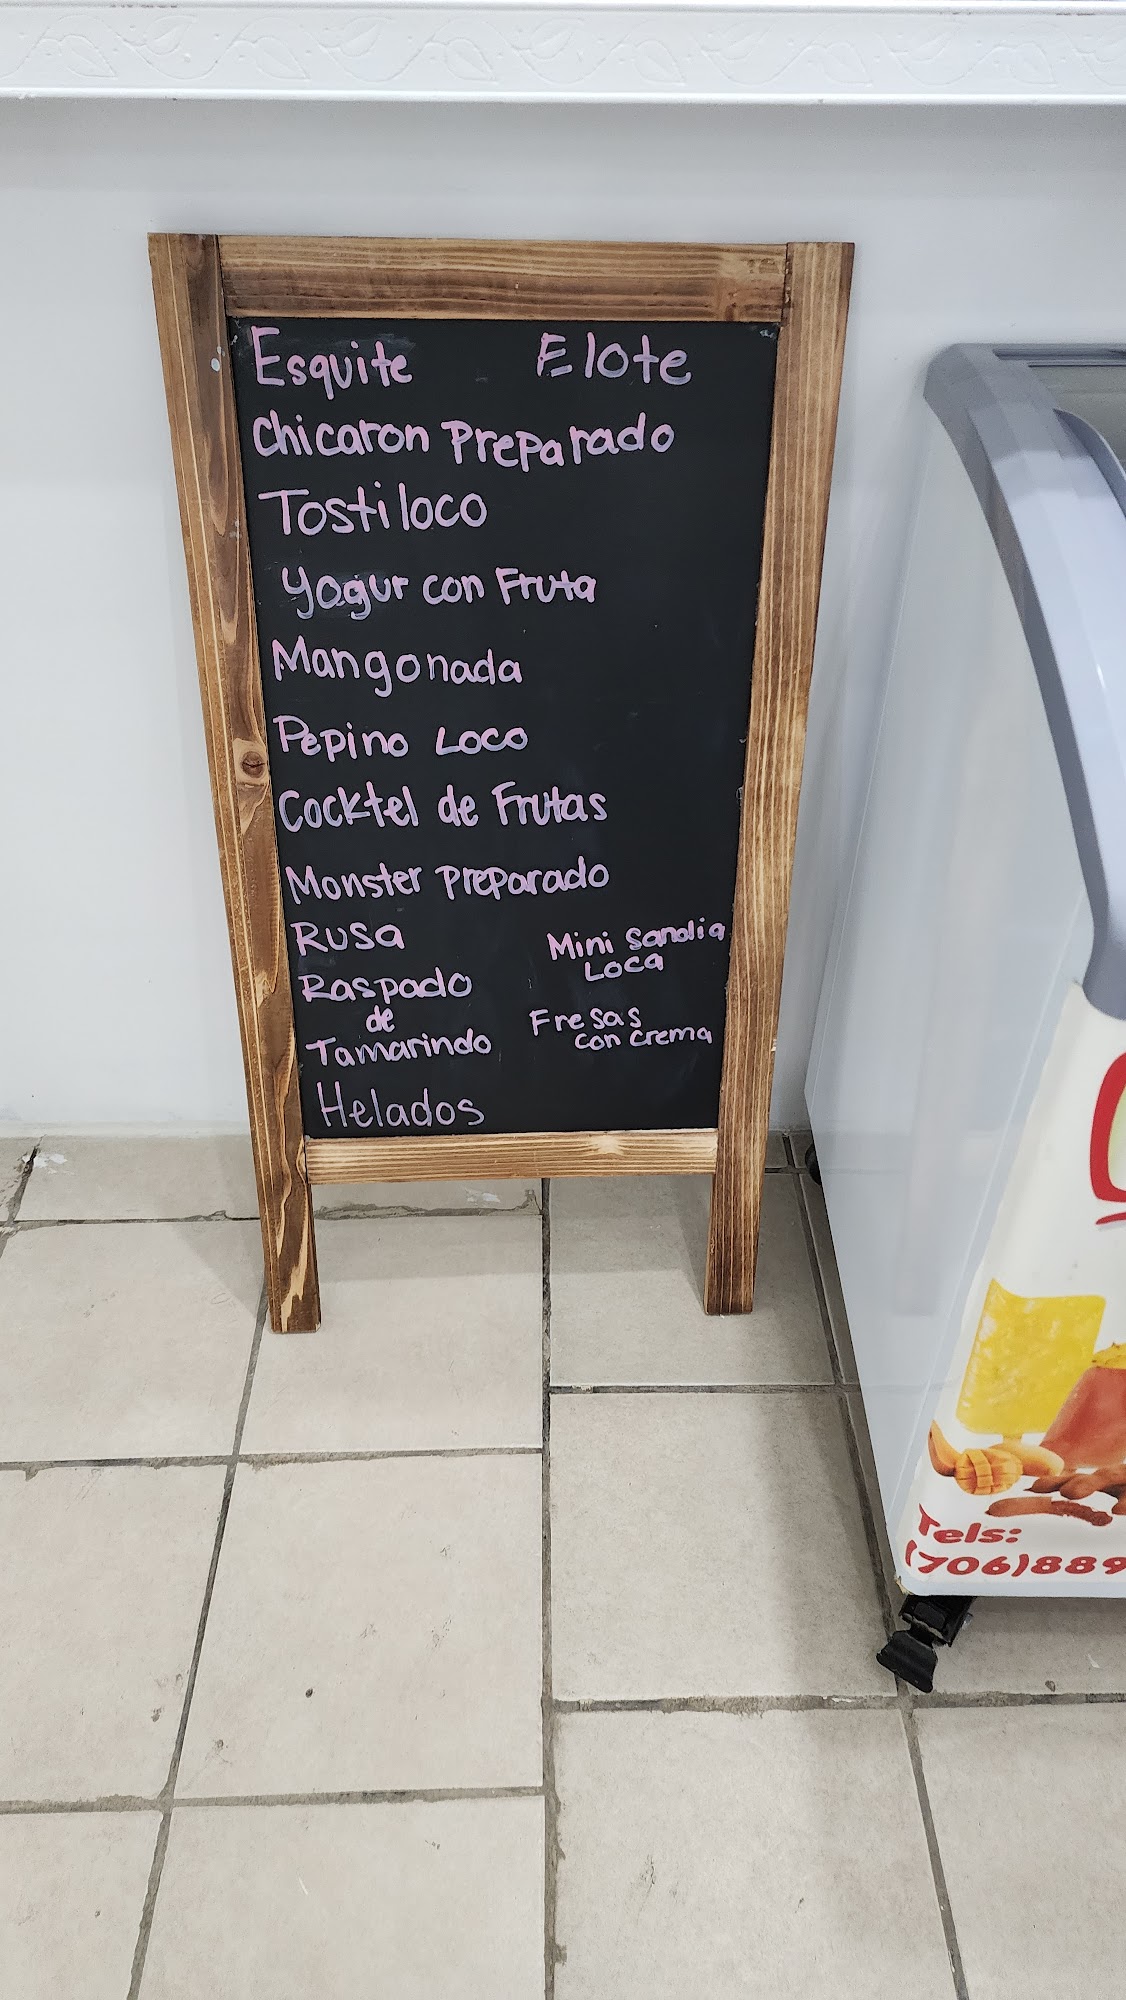 Esquite Elote
Chicaron Preparado
Tostiloco
Yogur con Fruta
Mangonada
Pepino Loco
Cocktel de Frutas
Monster preparado
Rusa
Raspado
de
Tamarindo
Mini Sandia
Loca
Fresas
con crema
Helados
Tels:
(706)889